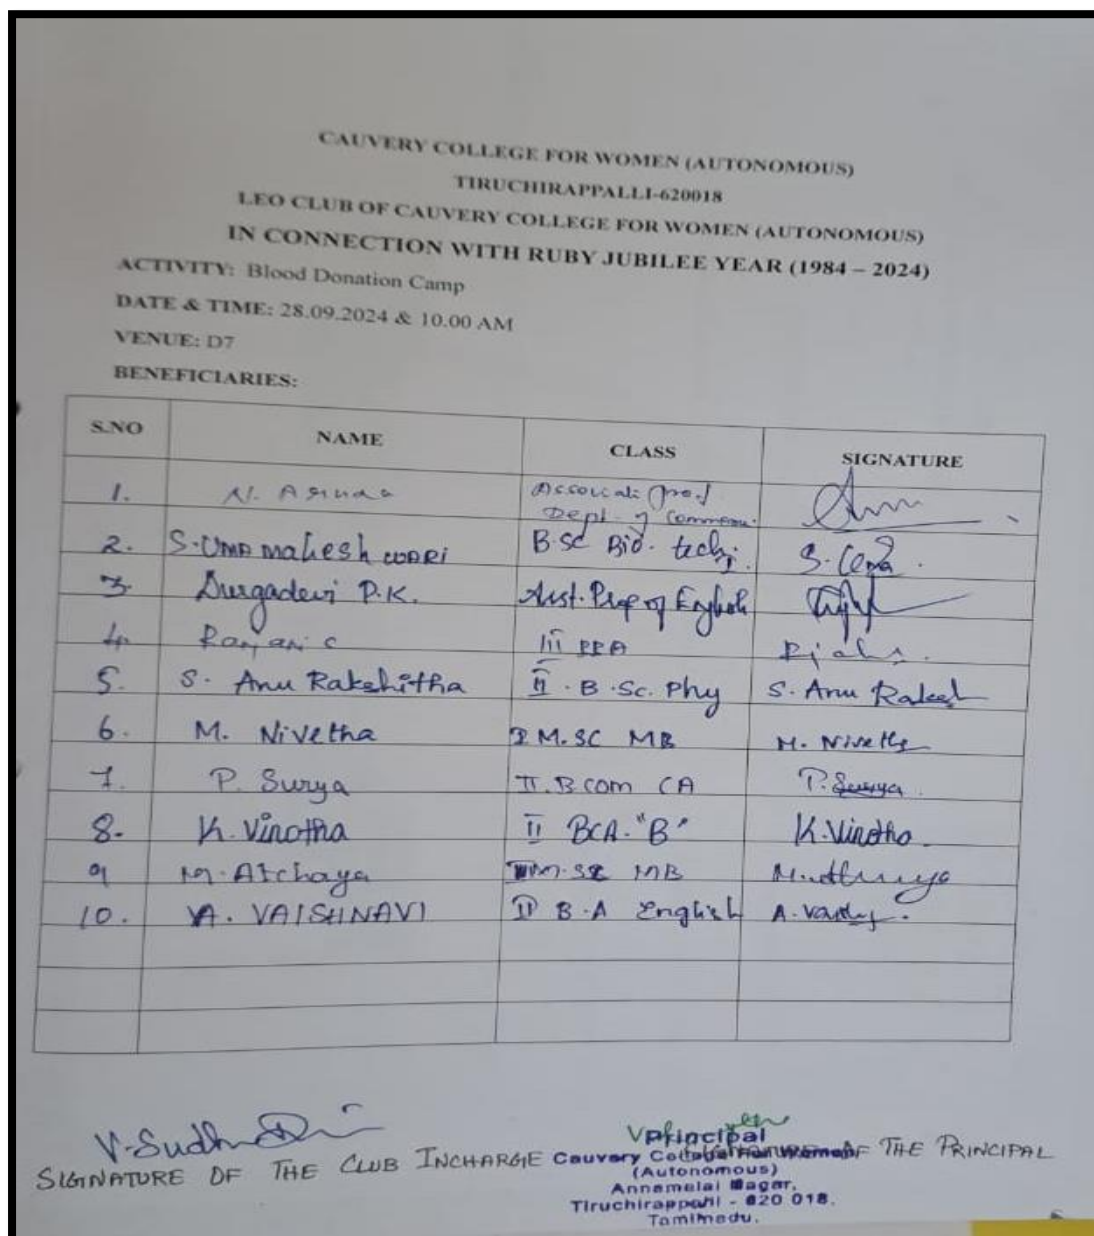 CAUVERY COLLEGE FOR WOMEN (AUTONOMOUS)
TIRUCHIRAPPALLI-620018
LEO CLUB OF CAUVERY COLLEGE FOR WOMEN (AUTONOMOUS)
IN CONNECTION WITH RUBY JUBILEE YEAR (1984 – 2024)
ACTIVITY: Blood Donation Camp
DATE & TIME: 28.09.2024 & 10.00 AM
VENUE: D7
BENEFICIARIES:
S.NO NAME CLASS SIGNATURE
1. N. Prof.
Dept. of
2. S. UMA maheshwARi B.SC Bio. tech
3. Durgadevi P.K. Asst. Prof of English
4. Ranjani C III
5. S. Anu Rakshitha II. B.Sc. Phy S. Anu
6. M. Nivetha M.SC MB M. Nivetha
7. P. Surya II. B.com CA P. Surya
8. K. Vinotha II BCA. "B" K. Vinotha
9 M. Atchaya M.SC MB
10. A. VAISHNAVI II B.A English A.
V. Sudha
SIGNATURE OF THE CLUB INCHARGE
Principal
OF THE PRINCIPAL
Cauvery College for Women
(Autonomous)
Annamalai Nagar,
Tiruchirappalli - 620 018.
Tamilnadu.